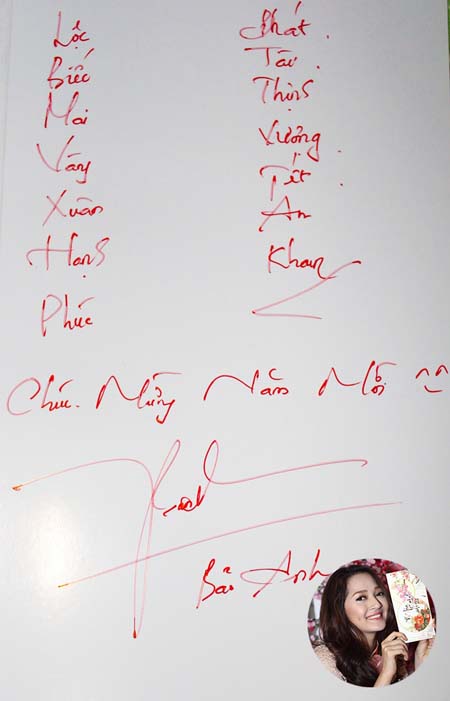 Lộc
Biếc
Mai
Vàng
Xuân
Hạnh
Phúc
Phát.
Tài.
Thịnh
Vượng.
Tết.
An
Khang
Chúc Mừng Năm Mới ^^
Bảo Anh